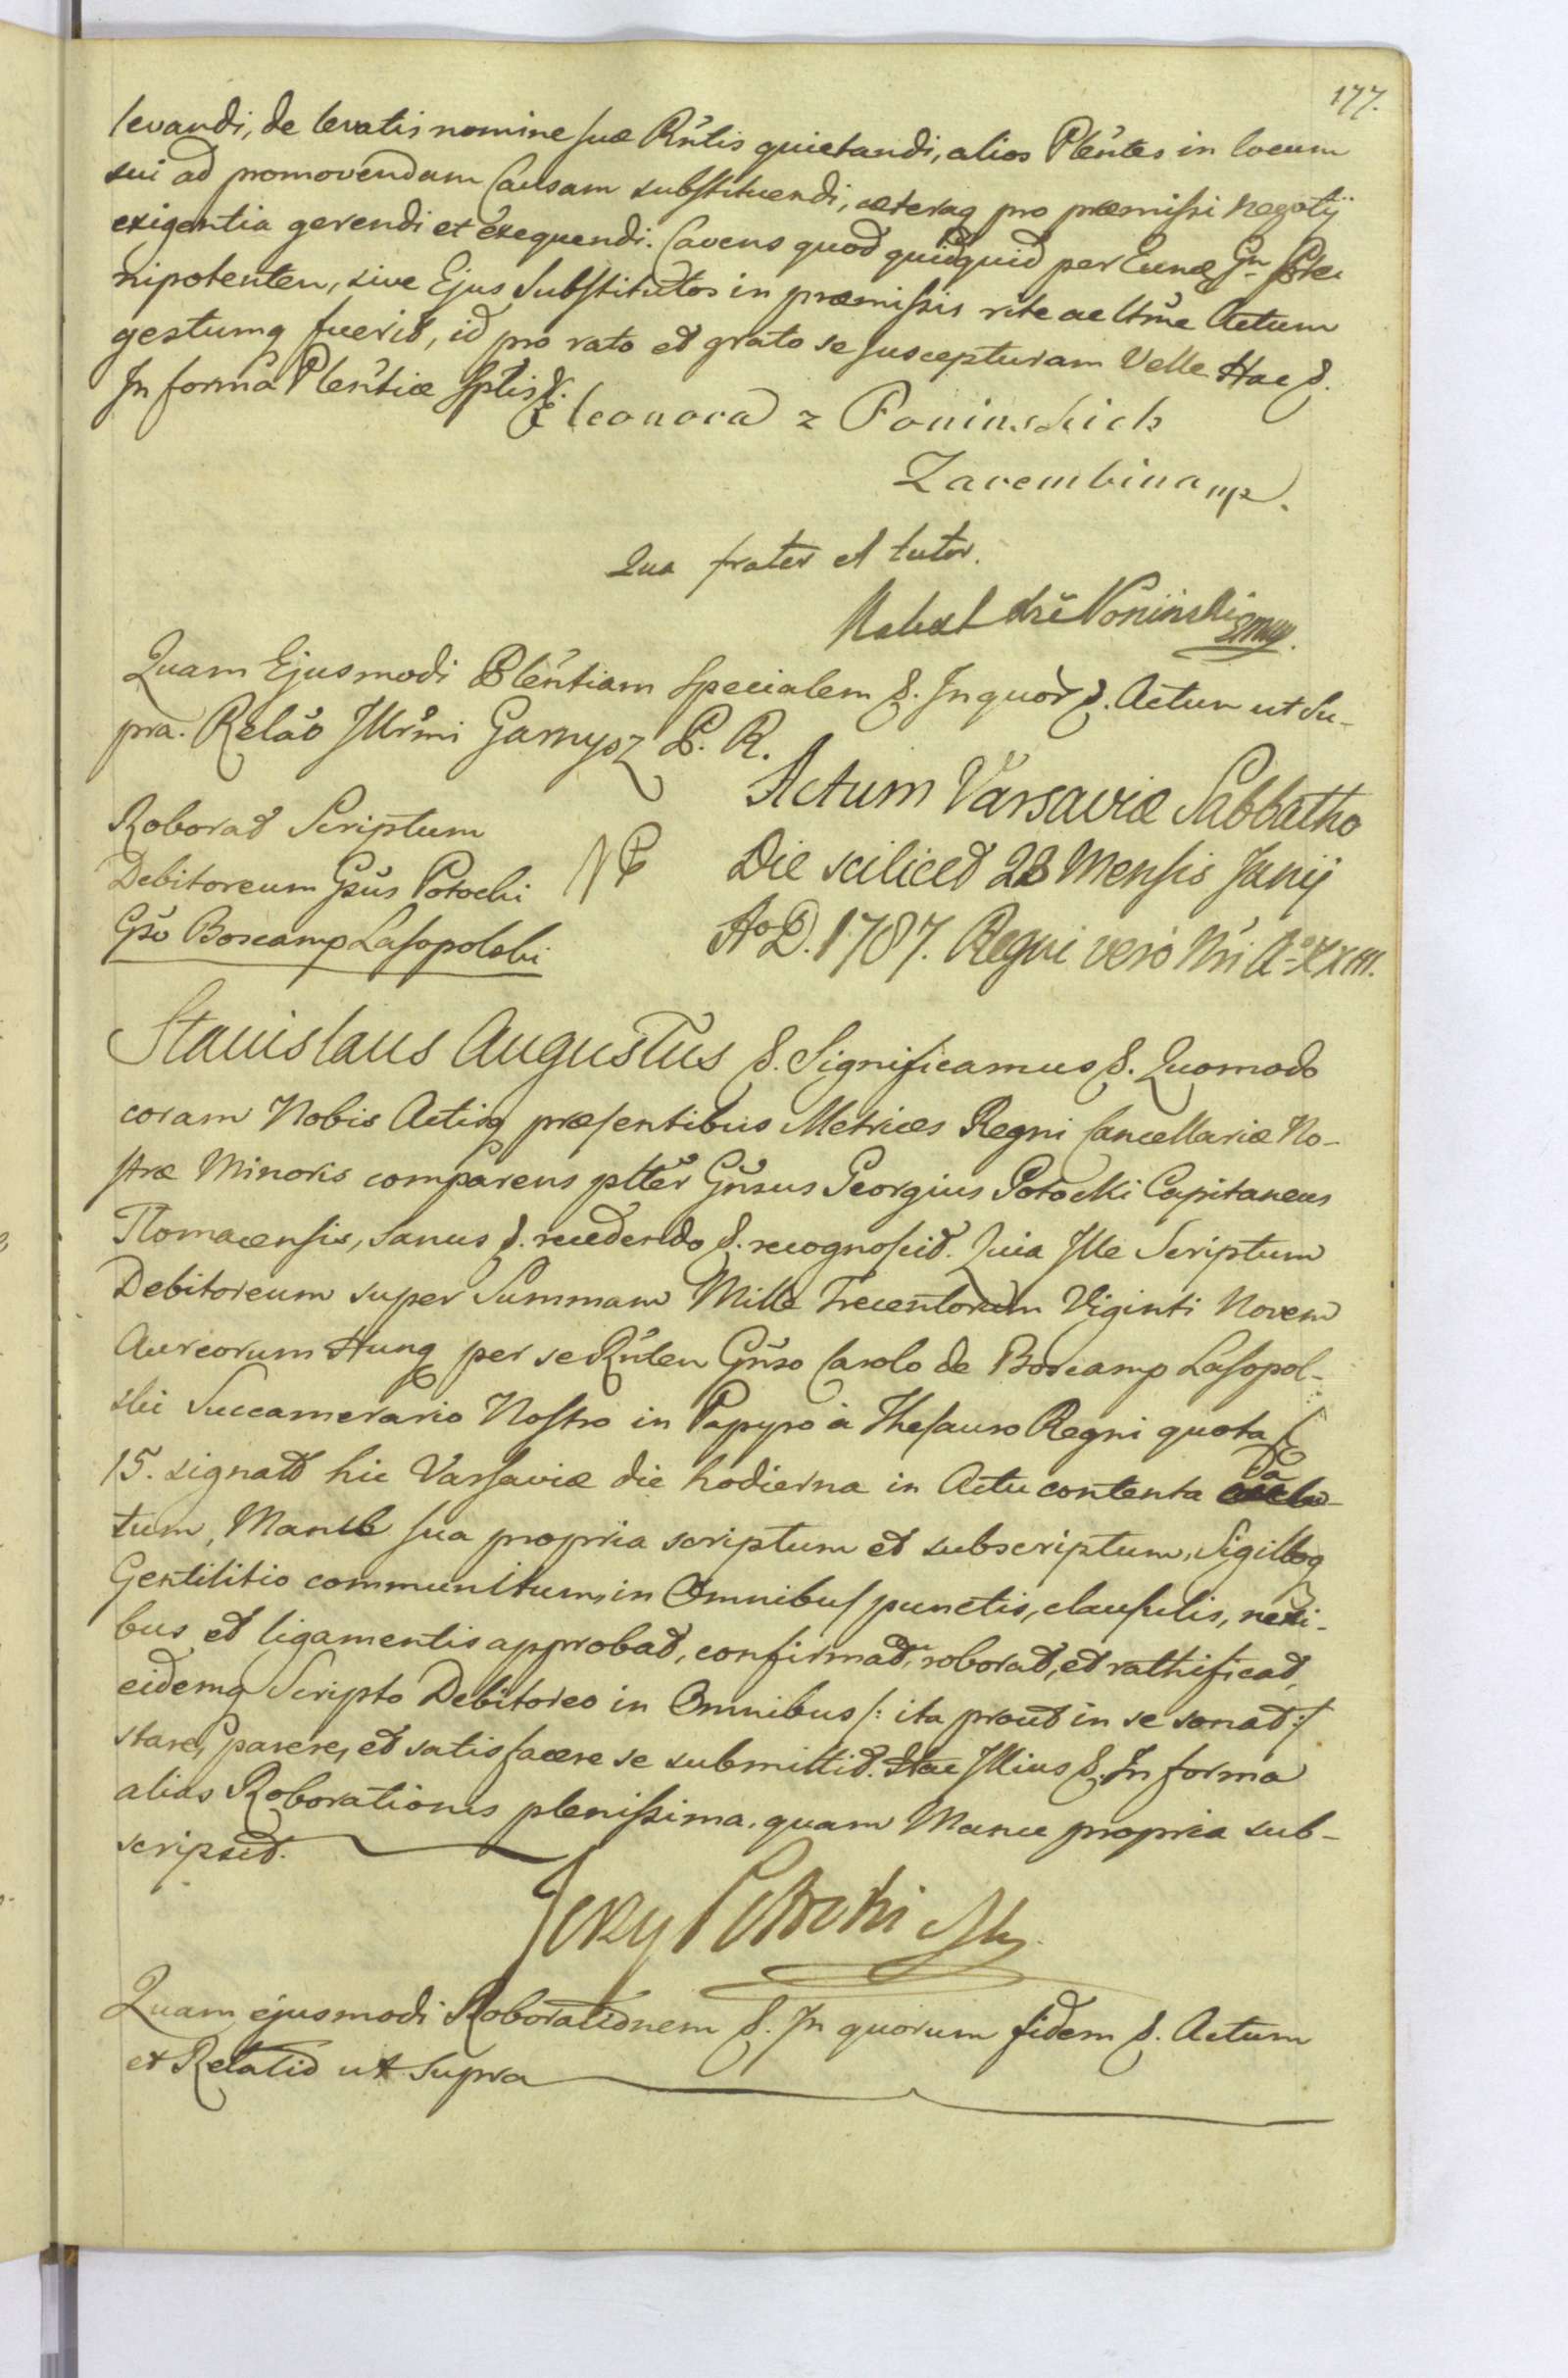 177.
levandi, de levatis nomine suæ Rñtis quietandi, alios Plentes in locum
sui ad promovendam Causam substituendi, cæteraq pro præmissi negotÿ
exigentia gerendi et exequendi. Cavens quod quidquid per Eundem Gn Ple
nipotentem, sive Ejus Substitutos in præmissis rite ac ltme Actum
gestumq fuerit, id pro rato et grato se suscepturam Velle Hac &.
In forma Plentiæ Splis &.
Eleonora z Poninskich
Zarembina mp.
Qua frater et tutor.
Xże Poninski mp.
Quam Ejusmodi Plentiam Specialem &. In quor &. Actum ut Su-
pra. Relao Illrmi Garnysz P. R.
Roborat Scriptum
Debitoreum Gsus Potocki
Gso Boscamp Lasopolski
Actum Varsaviæ Sabbatho
Die scilicet 23 Mensis Junÿ
Ao D. 1787. Regni vero Nri Ao XXIII.
Stanislaus Augustus &. Significamus &. Quomodo
coram Nobis Actisq præsentibus Metrices Regni Cancellariæ No-
stræ Minoris comparens plter Gnsus Georgius Potocki Capitaneus
Tlomacensis, sanus &. recedendo &. recognoscit. Quia Ille Scriptum
Debitoreum super Summam Mille Trecentorum Viginti Novem
Aureorum Hung per se Rñtem Gnso Carolo de Boscamp Lasopol-
ski Succamerario Nostro in Papyro à Thesauro Regni quota
15. signato hic Varsaviæ die hodierna in Actu contenta da
tum, Manu sua propria scriptum et subscriptum, Sigilloq
Gentilitio communitum, in Omnibus punctis, clausulis, nexi-
bus et ligamentis approbat, confirmat, roborat, et rathificat,
eidemq Scripto Debitoreo in Omnibus /: ita prout in se sonat :/
stare, parere, et satisfacere se submittit. Hac Illius &. In forma
alias Roborationis plenissima. quam Manu propria sub-
scripsit.
Jerzy Potocki
Quam ejusmodi Roborationem &. In quorum fidem &. Actum
et Relatio ut Supra